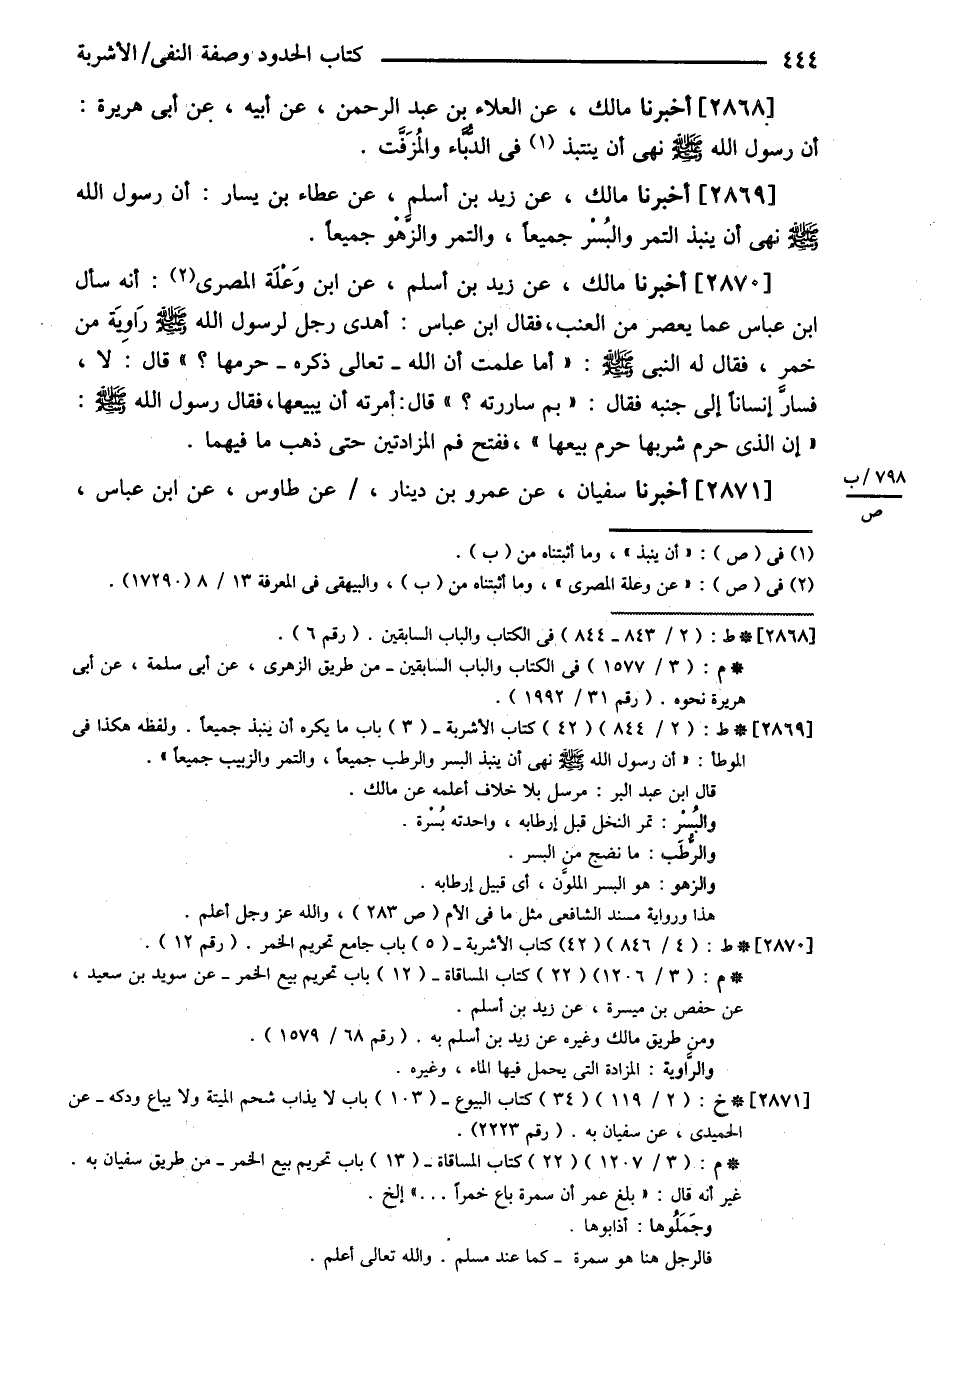 ٤٤٤ ــــــــــــــــــــــــــ كتاب الحدود وصفة النفى/ الأشربة
[٢٨٦٨] أخبرنا مالك ، عن العلاء بن عبد الرحمن ، عن أبيه ، عن أبى هريرة :
أن رسول الله ﷺ نهى أن ينتبذ (١) فى الدُّبَّاء والمُزَفَّت .
[٢٨٦٩] أخبرنا مالك ، عن زيد بن أسلم ، عن عطاء بن يسار : أن رسول الله
ﷺ نهى أن ينبذ التمر والبُسْر جميعاً ، والتمر والزَّهْو جميعاً .
[٢٨٧٠] أخبرنا مالك ، عن زيد بن أسلم ، عن ابن وَعْلَة المصرى(٢) : أنه سأل
ابن عباس عما يعصر من العنب،فقال ابن عباس : أهدى رجل لرسول الله ﷺ رَاوِيَة من
خمر ، فقال له النبى ﷺ : « أما علمت أن الله ـ تعالى ذكره ـ حرمها ؟ » قال : لا ،
فسارَّ إنساناً إلى جنبه فقال : « بم ساررته ؟ » قال: أمرته أن يبيعها،فقال رسول الله ﷺ :
« إن الذى حرم شربها حرم بيعها » ،ففتح فم المزادتين حتى ذهب ما فيهما .
[٢٨٧١] أخبرنا سفيان ، عن عمرو بن دينار ، / عن طاوس ، عن ابن عباس ،
٧٩٨ /ب
ص
(١) فى ( ص ) : « أن ينبذ » ، وما أثبتناه من ( ب ) .
(٢) فى ( ص ) : « عن وعلة المصرى » ، وما أثبتناه من ( ب ) ، والبيهقى فى المعرفة ١٣ / ٨ (١٧٢٩٠) .
[٢٨٦٨] * ط : ( ٢ / ٨٤٣ ـ ٨٤٤ ) فى الكتاب والباب السابقين . ( رقم ٦ ) .
* م : ( ٣ / ١٥٧٧ ) فى الكتاب والباب السابقين ـ من طريق الزهرى ، عن أبى سلمة ، عن أبى
هريرة نحوه . ( رقم ٣١ / ١٩٩٢ ) .
[٢٨٦٩] * ط : ( ٢ / ٨٤٤ ) ( ٤٢ ) كتاب الأشربة ـ ( ٣ ) باب ما يكره أن ينبذ جميعاً . ولفظه هكذا فى
الموطأ : « أن رسول الله ﷺ نهى أن ينبذ البسر والرطب جميعاً ، والتمر والزبيب جميعاً » .
قال ابن عبد البر : مرسل بلا خلاف أعلمه عن مالك .
والبُسْر : تمر النخل قبل إرطابه ، واحدته بُسْرة .
والرُّطَب : ما نضج من البسر .
والزهو : هو البسر الملوَّن ، أى قبيل إرطابه .
هذا ورواية مسند الشافعى مثل ما فى الأم ( ص ٢٨٣ ) ، والله عز وجل أعلم .
[٢٨٧٠] * ط : ( ٤ / ٨٤٦ ) (٤٢) كتاب الأشربة ـ ( ٥ ) باب جامع تحريم الخمر . ( رقم ١٢ ) .
* م : ( ٣ / ١٢٠٦) ( ٢٢ ) كتاب المساقاة ـ ( ١٢ ) باب تحريم بيع الخمر ـ عن سويد بن سعيد ،
عن حفص بن ميسرة ، عن زيد بن أسلم .
ومن طريق مالك وغيره عن زيد بن أسلم به . ( رقم ٦٨ / ١٥٧٩ ) .
والرَّاوية : المزادة التى يحمل فيها الماء ، وغيره .
[٢٨٧١] * خ : ( ٢ / ١١٩ ) ( ٣٤ ) كتاب البيوع ـ ( ١٠٣ ) باب لا يذاب شحم الميتة ولا يباع ودكه ـ عن
الحميدى ، عن سفيان به . ( رقم ٢٢٢٣) .
* م : ( ٣ / ١٢٠٧ ) ( ٢٢ ) كتاب المساقاة ـ ( ١٣ ) باب تحريم بيع الخمر ـ من طريق سفيان به .
غير أنه قال : « بلغ عمر أن سمرة باع خمراً ...» إلخ .
وجَمَلُوها : أذابوها .
فالرجل هنا هو سمرة ـ كما عند مسلم . والله تعالى أعلم .